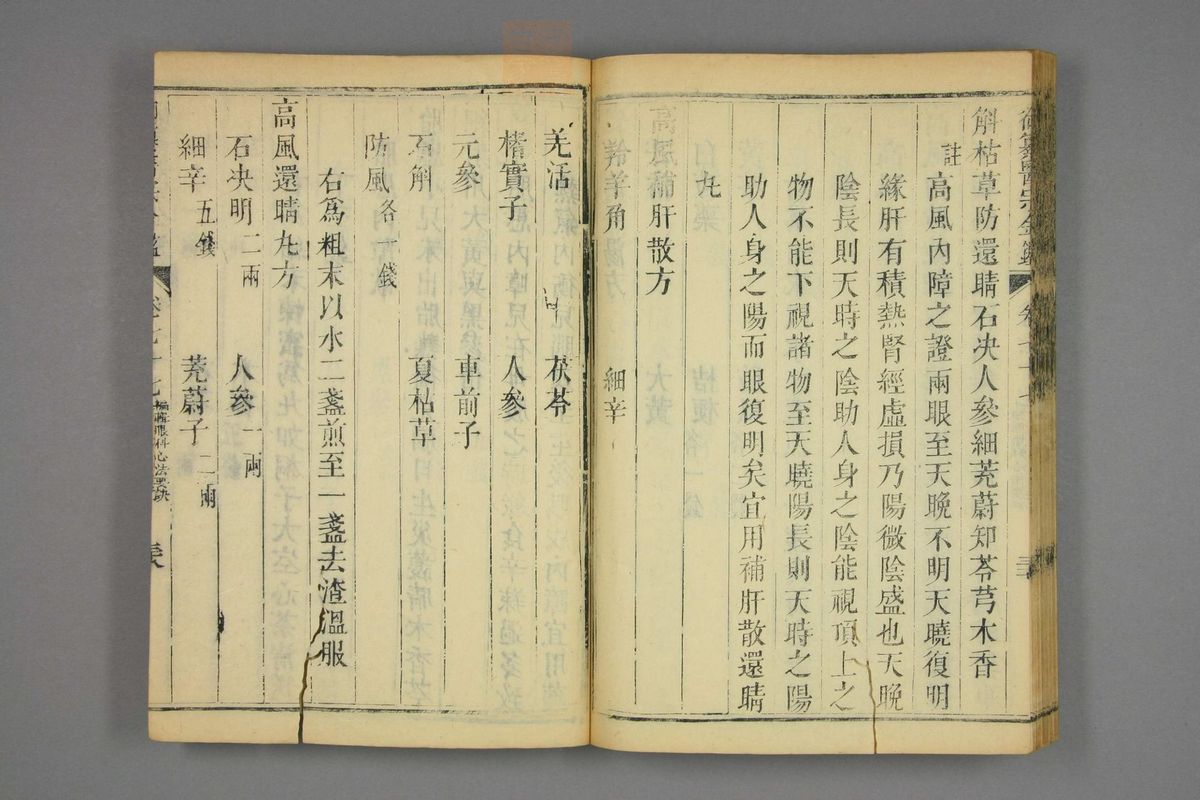 御纂醫宗金鑑 卷七十七
斛枯草防還睛石决人參細茺蔚知苓芎木香
註
高風內障之證兩眼至天晚不明天曉復明
緣肝有積熱腎經虛損乃陽微陰盛也天晚
陰長則天時之陰助人身之陰能視頂上之
物不能下視諸物至天曉陽長則天時之陽
助人身之陽而眼復明矣宜用補肝散還睛
丸
高風補肝散方
羚羊角 細辛
羌活 茯苓
楮實子 人參
元參 車前子
石斛 夏枯草
防風各一錢
右爲粗末以水二盞煎至一盞去渣溫服
高風還睛丸方
石决明二兩 人參一兩
細辛五錢 茺蔚子二兩
卷七十七 編輯眼科心法要訣